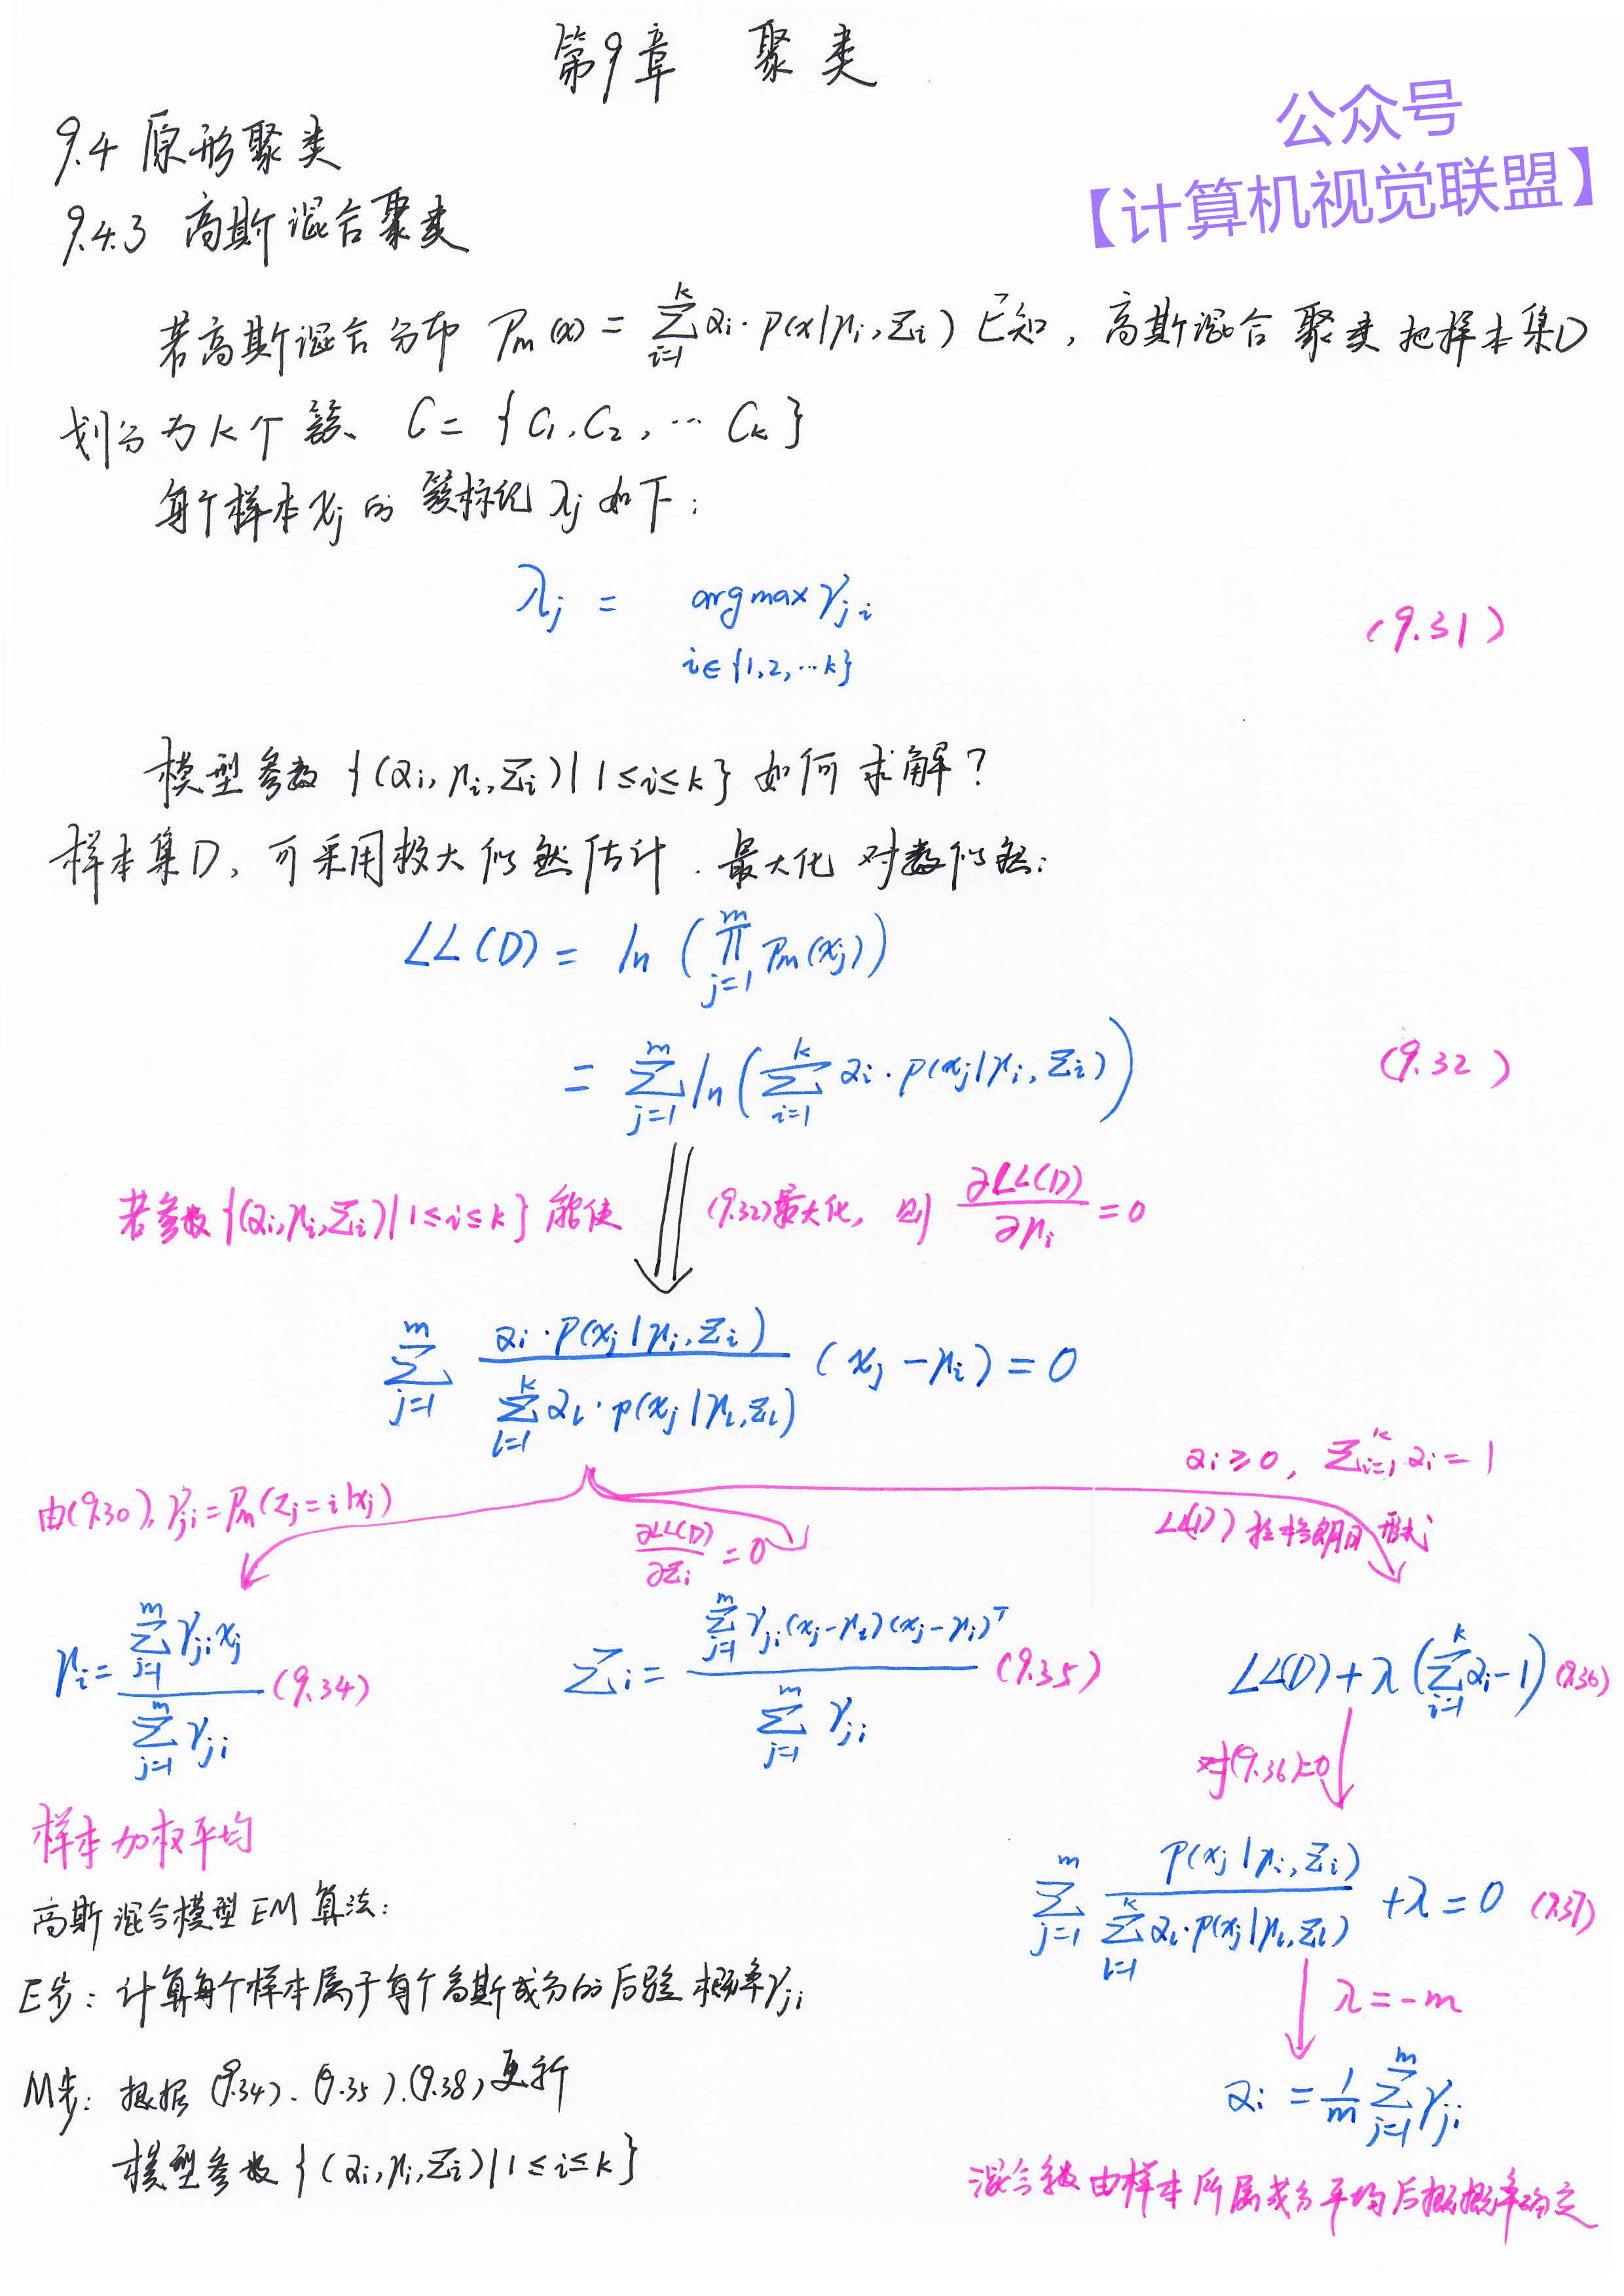 第9章 聚类
公众号
【计算机视觉联盟】
9.4 原形聚类
9.4.3 高斯混合聚类
若高斯混合分布 Pₘ(x) = ∑_{i=1}^{k} αᵢ · p(x|μᵢ, Σᵢ) 已知, 高斯混合聚类把样本集D
划分为k个簇、 C = {C₁, C₂, … Cₖ}
每个样本xⱼ的簇标记λⱼ如下:
λⱼ = argmax γⱼᵢ (9.31)
i∈{1,2,…k}
模型参数 {(αᵢ, μᵢ, Σᵢ)|1≤i≤k} 如何求解?
样本集D, 可采用极大似然估计. 最大化对数似然:
LL(D) = ln (∏_{j=1}^{m} Pₘ(xⱼ))
= ∑_{j=1}^{m} ln (∑_{i=1}^{k} αᵢ · p(xⱼ|μᵢ, Σᵢ)) (9.32)
若参数{(αᵢ, μᵢ, Σᵢ)|1≤i≤k} 能使 (9.32)最大化, 则 ∂LL(D)/∂μᵢ = 0
∑_{j=1}^{m} αᵢ · p(xⱼ|μᵢ, Σᵢ) / ∑_{l=1}^{k} αₗ · p(xⱼ|μₗ, Σₗ) (xⱼ - μᵢ) = 0
αᵢ ≥ 0, ∑_{i=1}^{k} αᵢ = 1
由(9.30), γⱼᵢ = Pₘ(zⱼ = i|xⱼ)
∂LL(D)/∂Σᵢ = 0
LL(D) 拉格朗日形式
μᵢ = ∑_{j=1}^{m} γⱼᵢ xⱼ / ∑_{j=1}^{m} γⱼᵢ (9.34)
Σᵢ = ∑_{j=1}^{m} γⱼᵢ (xⱼ-μᵢ)(xⱼ-μᵢ)ᵀ / ∑_{j=1}^{m} γⱼᵢ (9.35)
LL(D) + λ (∑_{i=1}^{k} αᵢ - 1) (9.36)
对(9.36)=0
样本加权平均
∑_{j=1}^{m} p(xⱼ|μᵢ, Σᵢ) / ∑_{l=1}^{k} αₗ · p(xⱼ|μₗ, Σₗ) + λ = 0 (9.37)
λ = -m
αᵢ = 1/m ∑_{j=1}^{m} γⱼᵢ
高斯混合模型EM算法:
E步: 计算每个样本属于每个高斯成分的后验概率γⱼᵢ
M步: 根据 (9.34)、(9.35)、(9.38)更新
模型参数 {(αᵢ, μᵢ, Σᵢ)|1≤i≤k}
由样本所属成分平均后概概率确定